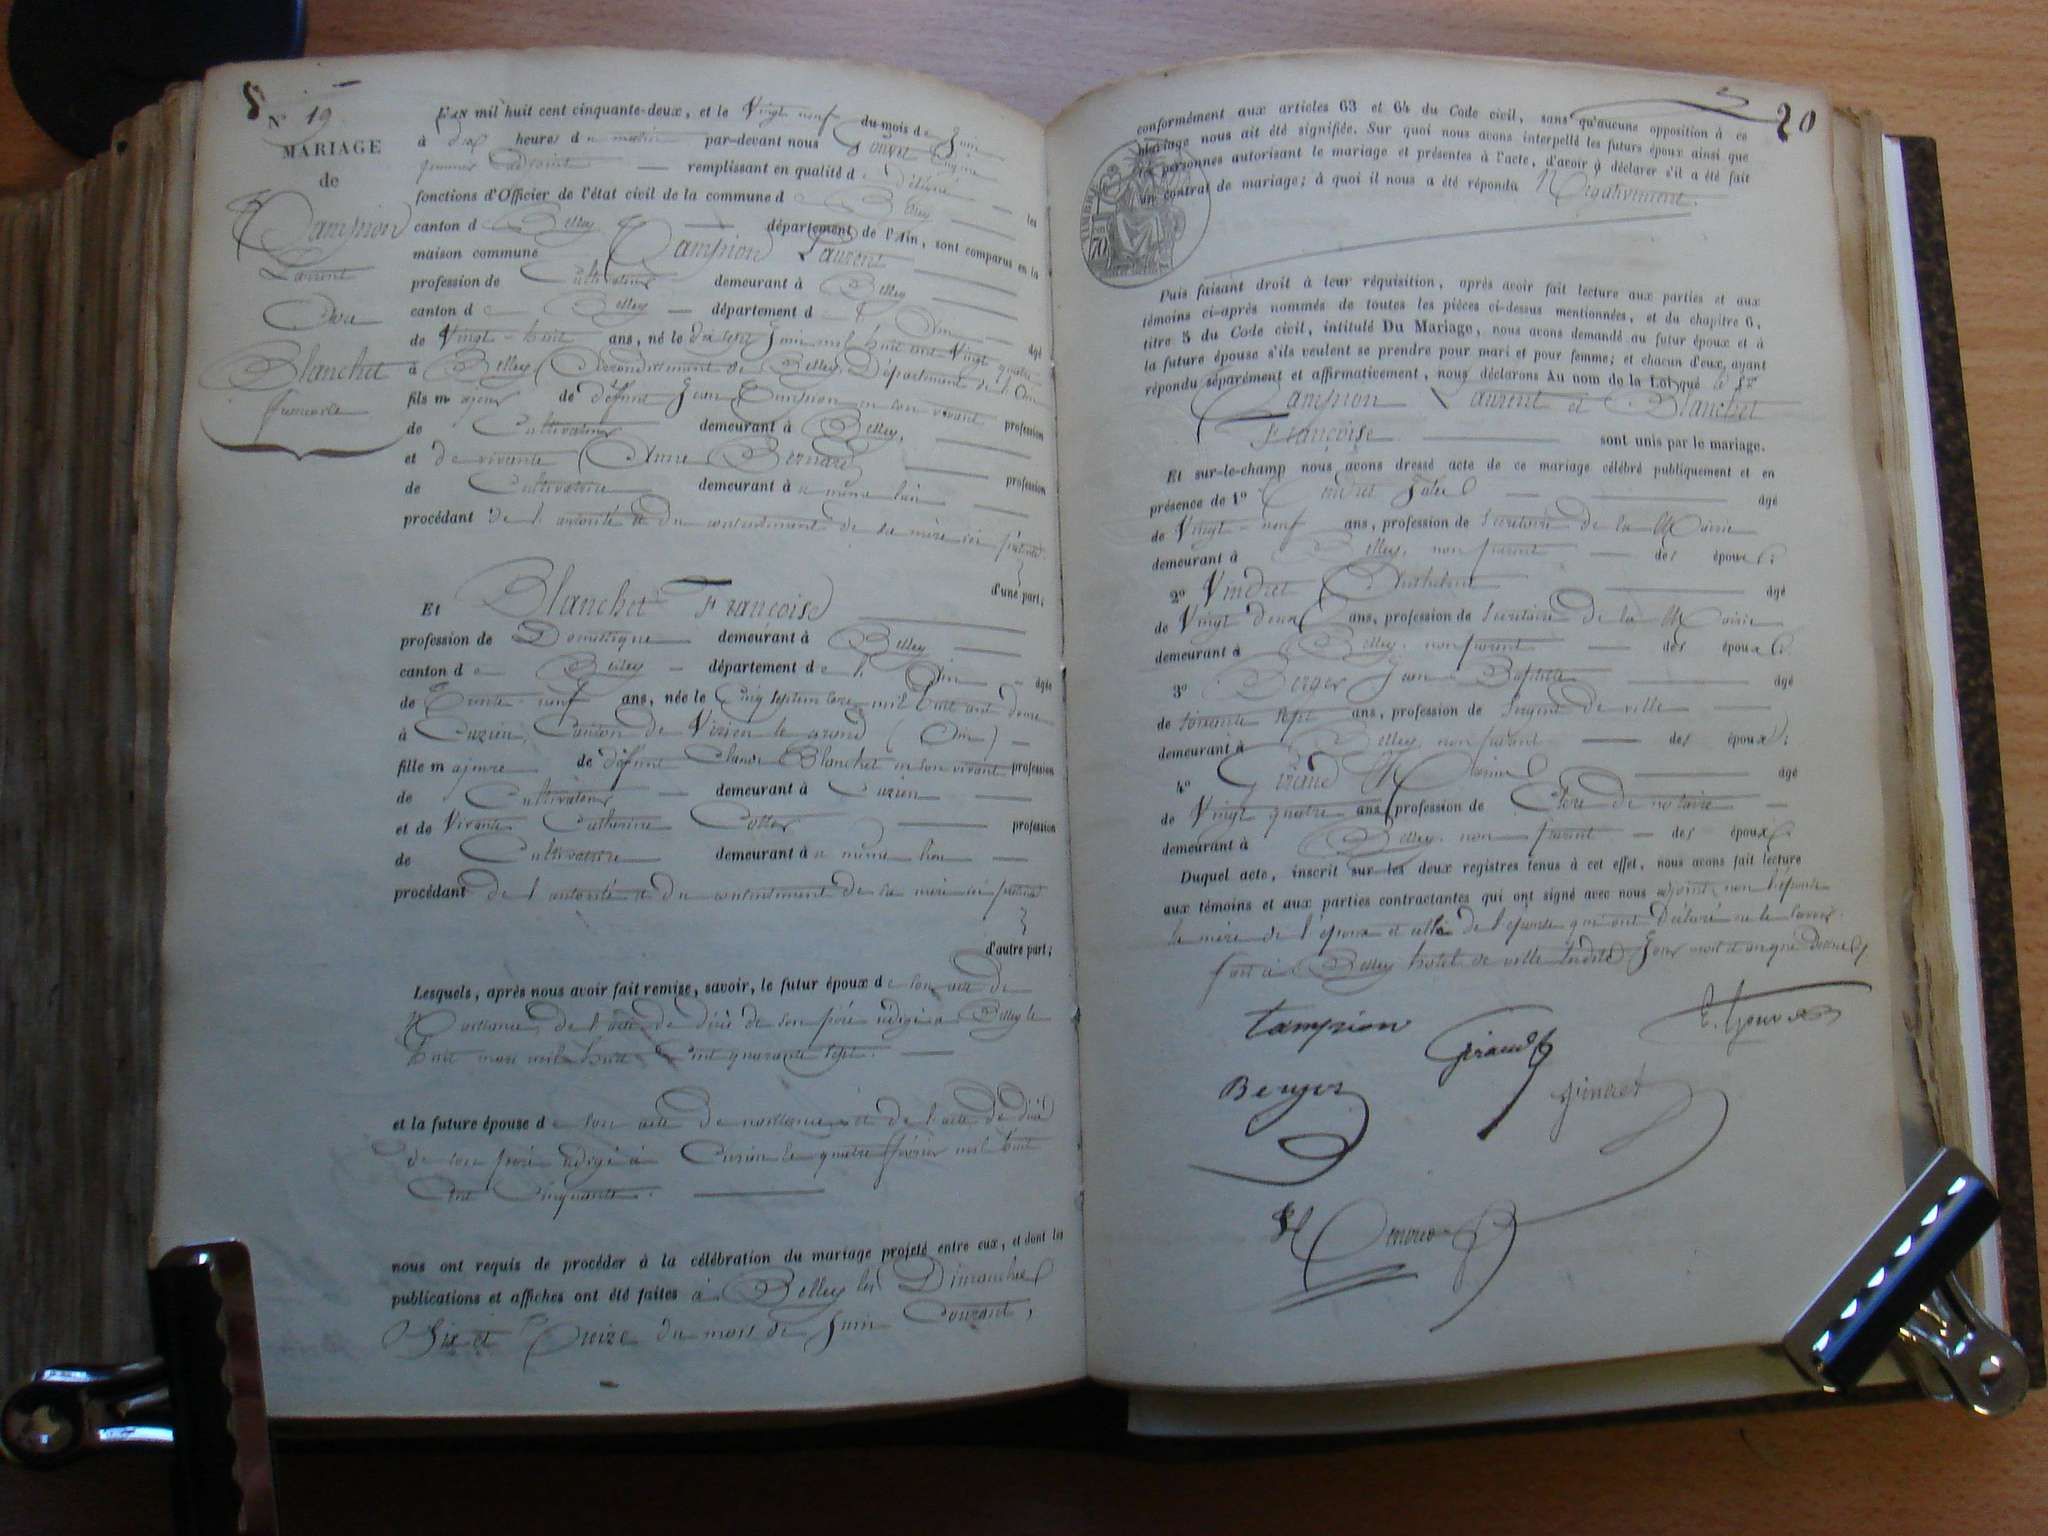 N° 19
MARIAGE
de
Tampion
Laurent
Avec
Blanchet
françoise
L'AN mil huit cent cinquante-deux, et le Vingt neuf du mois de Juin
à dix heures du matin par-devant nous
premier adjoint remplissant en qualité de délégué les
fonctions d'Officier de l'état civil de la commune de Belley
canton de Belley département de l'Ain, sont comparus en la
maison commune Tampion Laurent
profession de Cultivateur demeurant à Belley
canton de Belley département de l'Ain âgé
de Vingt-huit ans, né le dix sept Juin mil huit cent Vingt quatre
à Belley (Arrondissement de Belley, Département de l'Ain
fils majeur de défunt Jean Tampion en son vivant profession
de Cultivateur demeurant à Belley,
et de vivante Anne Bernard profession
de Cultivatrice demeurant à u même lieu
procédant de l'autorité et du consentement de sa mère ici présente
d'une part;
Et Blanchet Françoise
profession de Domestique demeurant à Belley
canton de Belley département de l'Ain âgée
de Trente-neuf ans, née le Cinq septembre mil huit cent douze
à Cuzieu, Canton de Virieu le grand (Ain)
fille majeure de défunt Claude Blanchet en son vivant profession
de Cultivateur demeurant à Cuzieu
et de Vivante Catherine profession
de Cultivatrice demeurant à u même lieu
procédant de l'autorité et du consentement de sa mère ici présente
d'autre part;
Lesquels, après nous avoir fait remise, savoir, le futur époux de son acte de
Naissance, de l'acte de décès de son père rédigé à Belley le
huit mars mil huit Cent quarante sept.
et la future épouse de son acte de naissance et de l'acte de décès
de son père rédigé à Cuzieu le quatre février mil huit
Cent Cinquante.
nous ont requis de procéder à la célébration du mariage projeté entre eux, et dont les
publications et affiches ont été faites à Belley les Dimanches
Six et Treize du mois de Juin Courant,
20
conformément aux articles 63 et 64 du Code civil, sans qu'aucune opposition à ce
mariage nous ait été signifiée. Sur quoi nous avons interpellé les futurs époux ainsi que
les personnes autorisant le mariage et présentes à l'acte, d'avoir à déclarer s'il a été fait
un contrat de mariage; à quoi il nous a été répondu Négativement.
TIMBRE
70
Puis faisant droit à leur réquisition, après avoir fait lecture aux parties et aux
témoins ci-après nommés de toutes les pièces ci-dessus mentionnées, et du chapitre 6,
titre 5 du Code civil, intitulé Du Mariage, nous avons demandé au futur époux et à
la future épouse s'ils veulent se prendre pour mari et pour femme; et chacun d'eux, ayant
répondu séparément et affirmativement, nous déclarons Au nom de la Loi que
Tampion Laurent et Blanchet
Françoise sont unis par le mariage.
Et sur-le-champ nous avons dressé acte de ce mariage célébré publiquement et en
présence de 1° âgé
de Vingt-neuf ans, profession de Secrétaire de la Mairie
demeurant à Belley, non parent des époux;
2° Vindret Anthelme âgé
de Vingt deux ans, profession de Secrétaire de la Mairie
demeurant à Belley, non parent des époux
3° Berger Jean Baptiste âgé
de soixante sept ans, profession de Sergent de ville
demeurant à Belley, non parent des époux;
4° Giraud âgé
de Vingt quatre ans, profession de Clerc de notaire
demeurant à Belley, non parent des époux
Duquel acte, inscrit sur les deux registres tenus à cet effet, nous avons fait lecture
aux témoins et aux parties contractantes qui ont signé avec nous adjoint, non l'épouse
la mère de l'époux et celle de l'épouse qui ont déclaré ne le savoir.
fait à Belley hotel de ville lesdits Jour mois et an que dessus
tampion
Giraud
Berger
Vindret